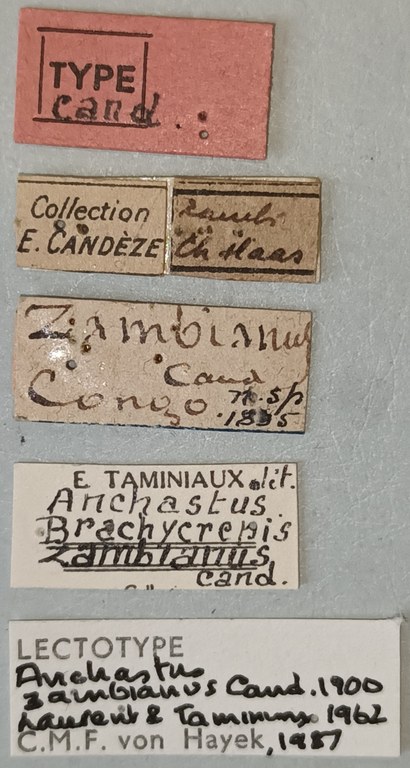 TYPE
Cand.
Collection
E. CANDÈZE
Zambi
Ch Haas
Zambianus
Cand
Congo n. sp
1895
E. TAMINIAUX dét.
Anchastus
Brachycrepis
Zambianus
Cand.
LECTOTYPE
Anchastus
zambianus Cand. 1900
Laurent & Taminiaux 1962
C.M.F. von Hayek, 1987